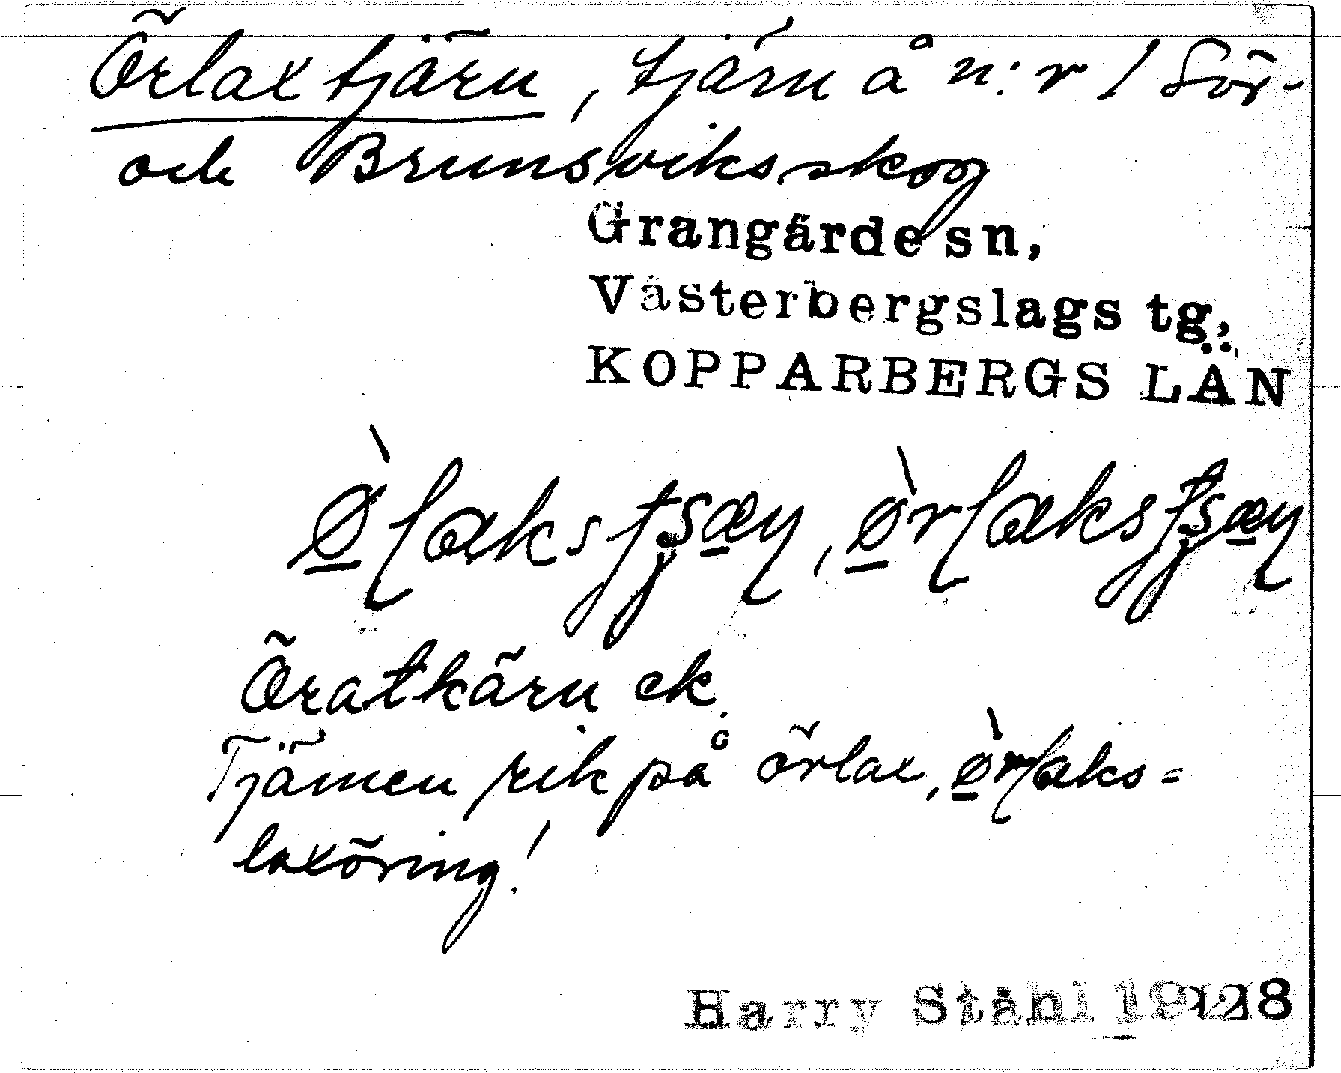 Örlaxtjärn, tjärn å n:r 1 Sör-
och Brunsviksskog
Grangärde sn,
Västerbergslags tg,
KOPPARBERGS LÄN
Öratkärn ek.
Tjärnen rik på örlax, ø̀rlaks =
laxöring!
Harry Ståhl 1928